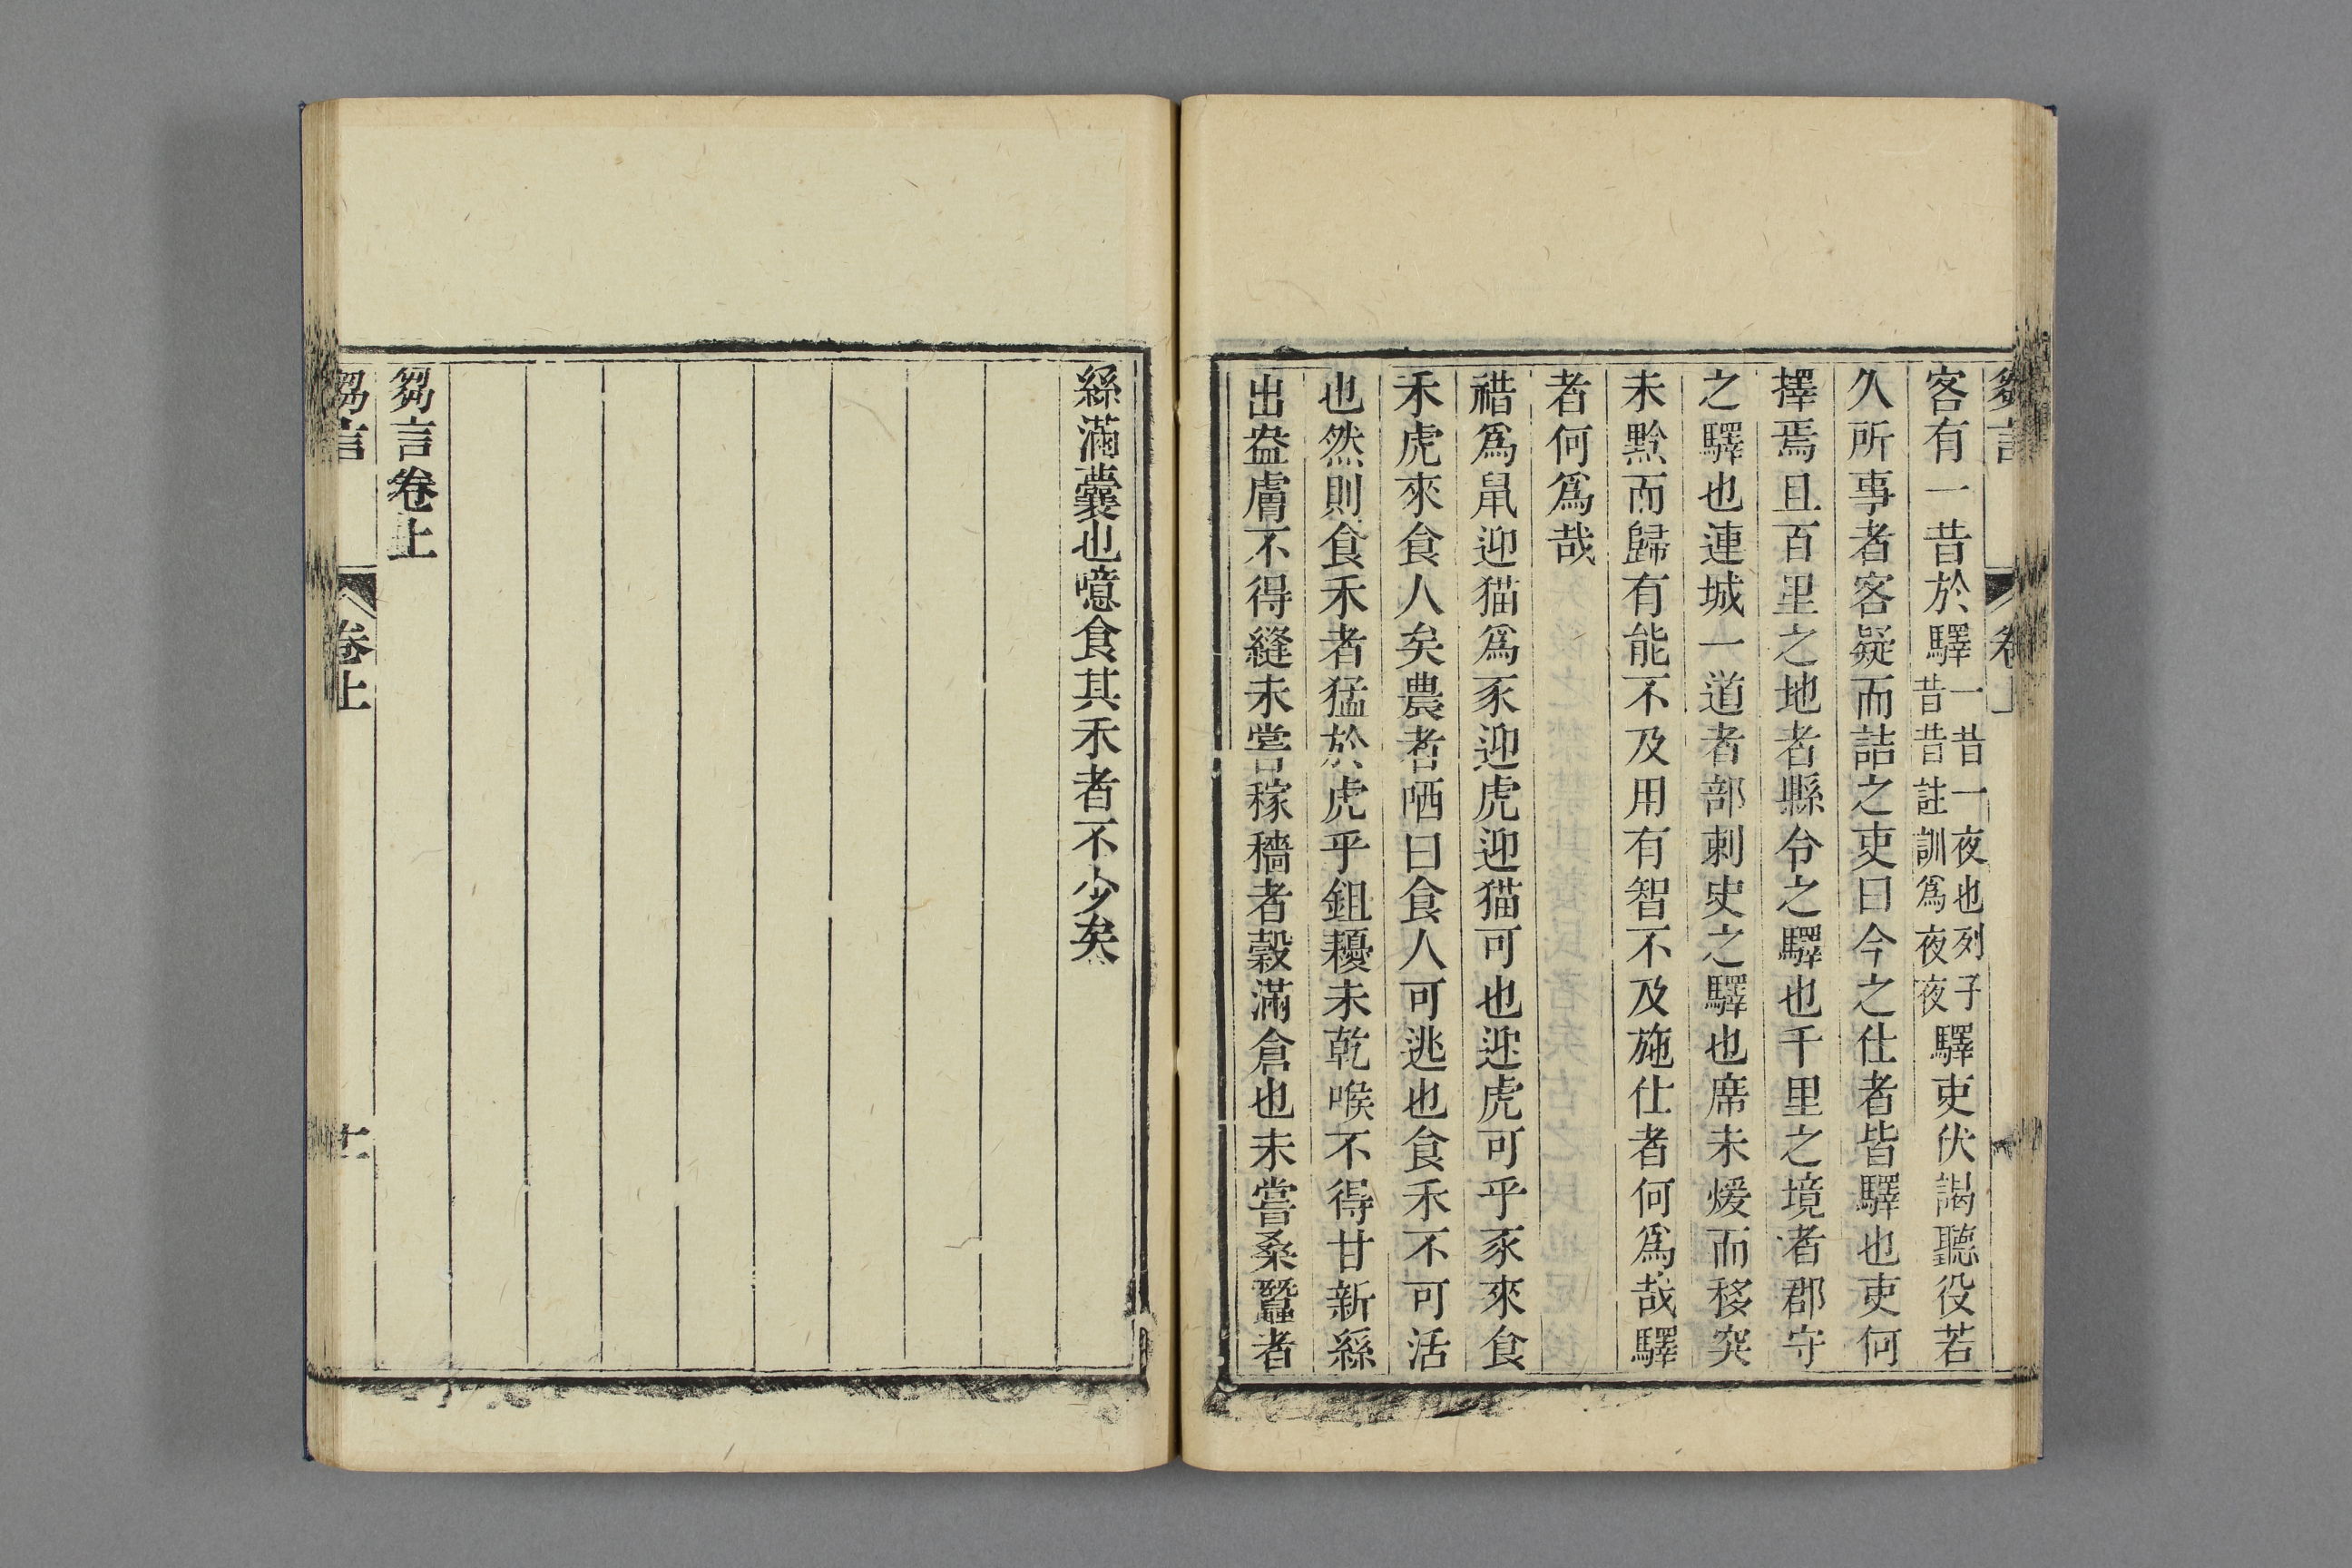 芻言
卷上
客有一昔於驛一昔一夜也列子昔昔註訓爲夜夜驛吏伏謁聽役若
久所事者客疑而詰之吏曰今之仕者皆驛也吏何
擇焉且百里之地者縣令之驛也千里之境者郡守
之驛也連城一道者部刺史之驛也席未煖而移突
未黔而歸有能不及用有智不及施仕者何爲哉驛
者何爲哉
䄍爲鼠迎猫爲豕迎虎迎猫可也迎虎可乎豕來食
禾虎來食人矣農者哂曰食人可逃也食禾不可活
也然則食禾者猛於虎乎鉏耰未乾喉不得甘新絲
出盎膚不得縫未嘗稼穡者穀滿倉也未嘗桑蠶者
絲滿囊也噫食其禾者不少矣
芻言卷上
芻言
卷上
十